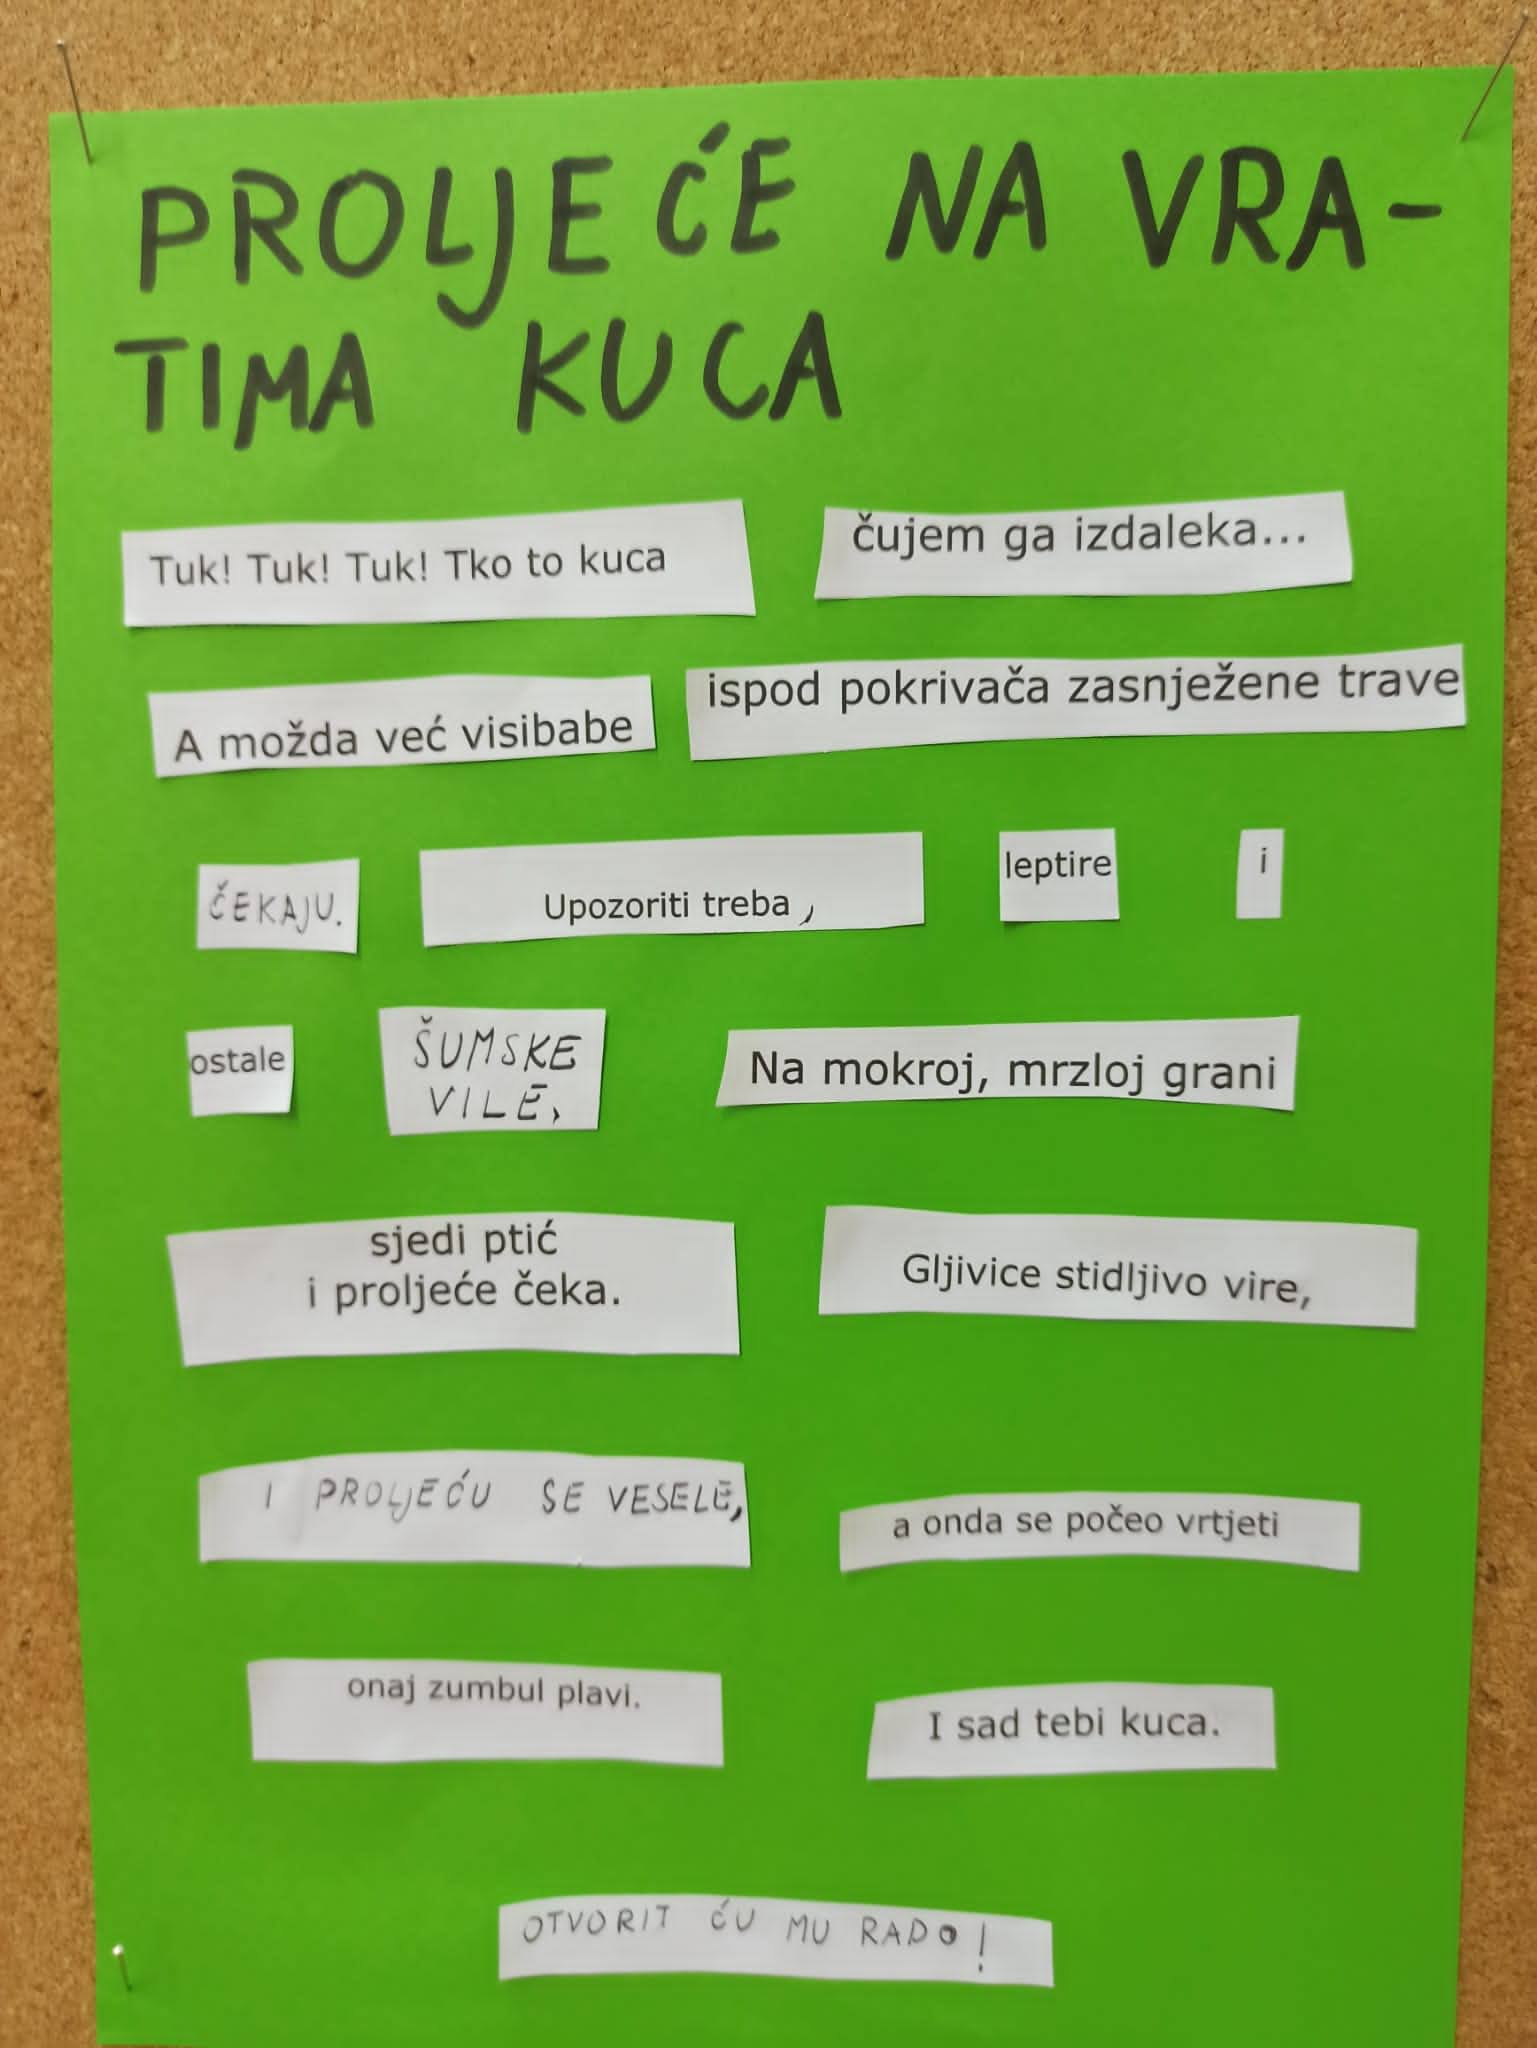 PROLJEĆE NA VRA-
TIMA KUCA
Tuk! Tuk! Tuk! Tko to kuca
čujem ga izdaleka...
A možda već visibabe
ispod pokrivača zasnježene trave
ČEKAJU.
Upozoriti treba,
leptire
i
ostale
ŠUMSKE
VILE,
Na mokroj, mrzloj grani
sjedi ptić
i proljeće čeka.
Gljivice stidljivo vire,
I PROLJEĆU SE VESELE,
a onda se počeo vrtjeti
onaj zumbul plavi.
I sad tebi kuca.
OTVORIT ĆU MU RADO!